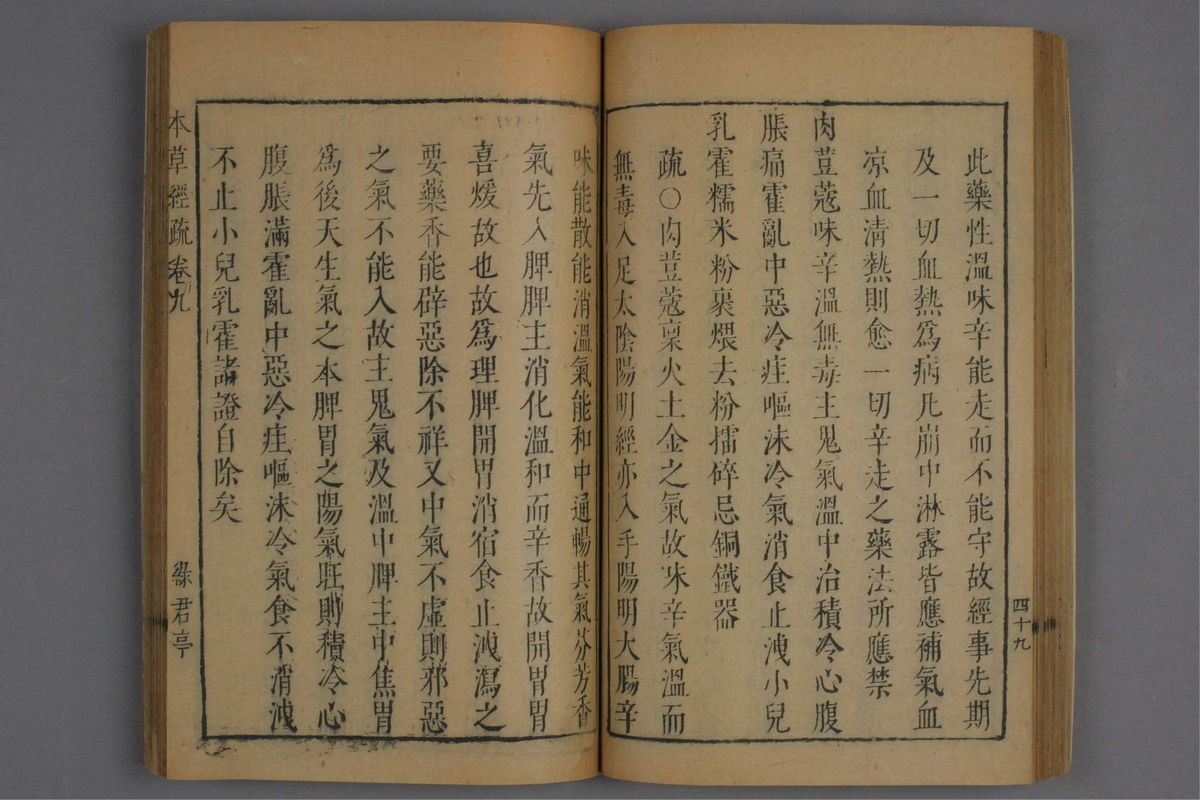 四十九
此藥性溫味辛能走而不能守故經事先期
及一切血熱爲病凡崩中淋露皆應補氣血
凉血清熱則愈一切辛走之藥法所應禁
肉荳蔻味辛溫無毒主鬼氣溫中治積冷心腹
脹痛霍亂中惡冷疰嘔沬冷氣消食止洩小兒
乳霍糯米粉裹煨去粉擂碎忌銅鐵器
疏○肉荳蔻稟火土金之氣故味辛氣溫而
無毒入足太陰陽明經亦入手陽明大腸辛
味能散能消溫氣能和中通暢其氣芬芳香
氣先入脾脾主消化溫和而辛香故開胃胃
喜煖故也故爲理脾開胃消宿食止洩瀉之
要藥香能辟惡除不祥又中氣不虛則邪惡
之氣不能入故主鬼氣及溫中脾主中焦胃
爲後天生氣之本脾胃之陽氣旺則積冷心
腹脹滿霍亂中惡冷疰嘔沬冷氣食不消洩
不止小兒乳霍諸證自除矣
本草經疏卷九 綠君亭